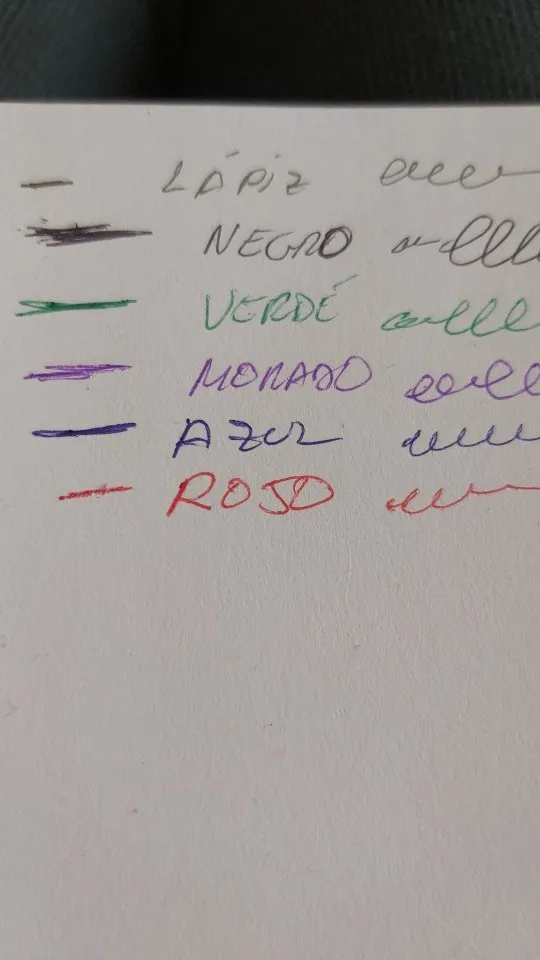 LÁPIZ
NEGRO
VERDÉ
MORADO
AZUL
ROJO